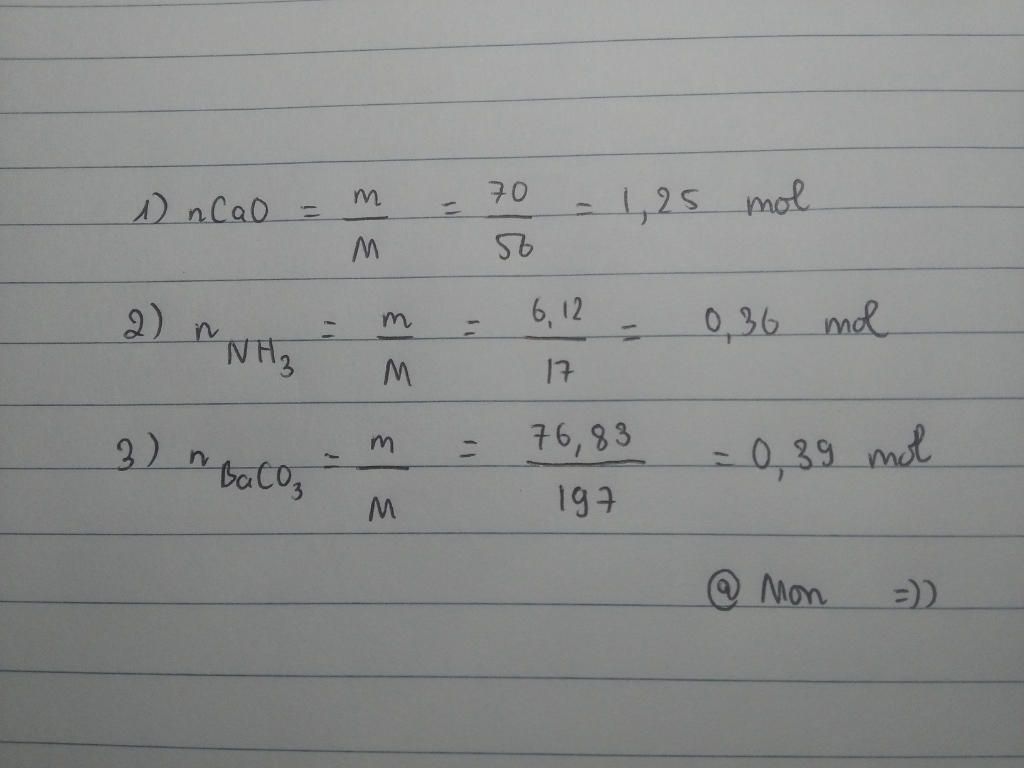 1) nCaO = m/M = 70/56 = 1,25 mol
2) n NH3 = m/M = 6,12/17 = 0,36 mol
3) n BaCO3 = m/M = 76,83/197 = 0,39 mol
@ Mon =))